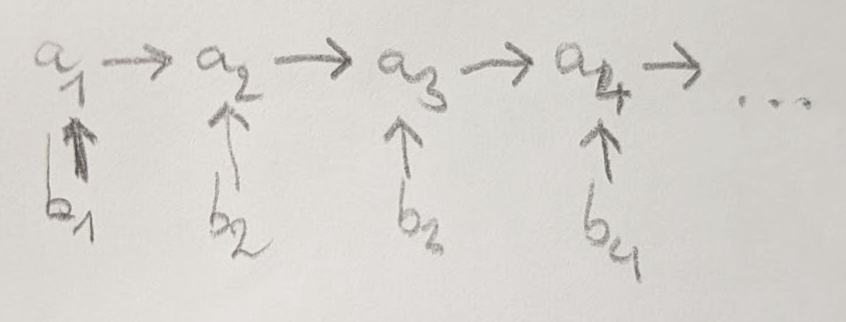 a₁ → a₂ → a₃ → a₄ → ...
↑ ↑ ↑ ↑
b₁ b₂ b₃ b₄